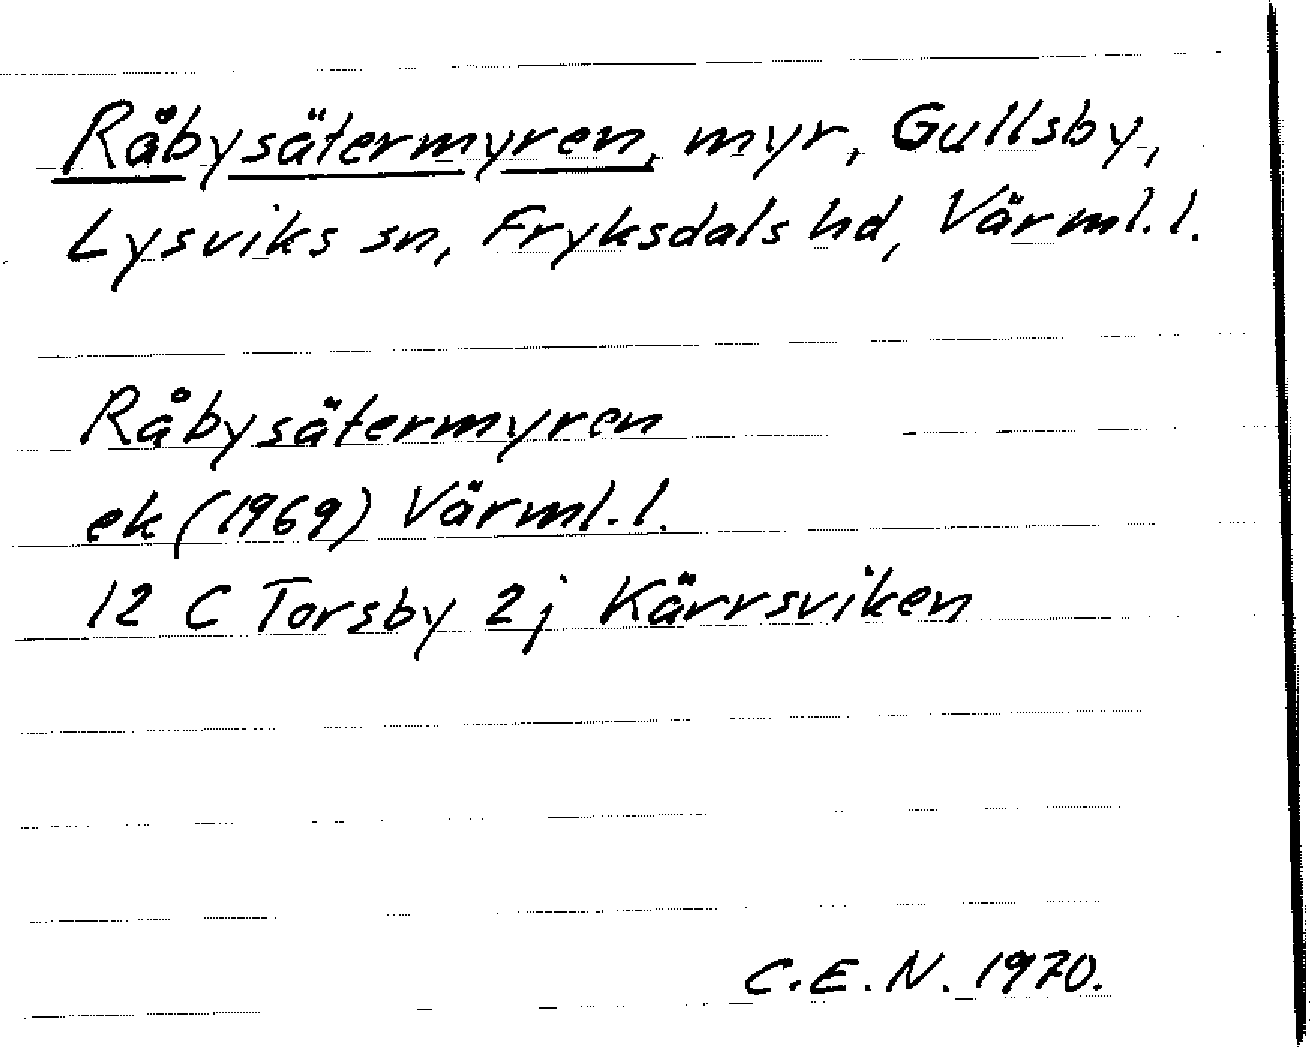 Råbysätermyren, myr, Gullsby,
Lysviks sn, Fryksdals hd, Värml. l.
Råbysätermyren
ek (1969) Värml. l.
12 C Torsby 2j Kärrsviken
C.E.N. 1970.